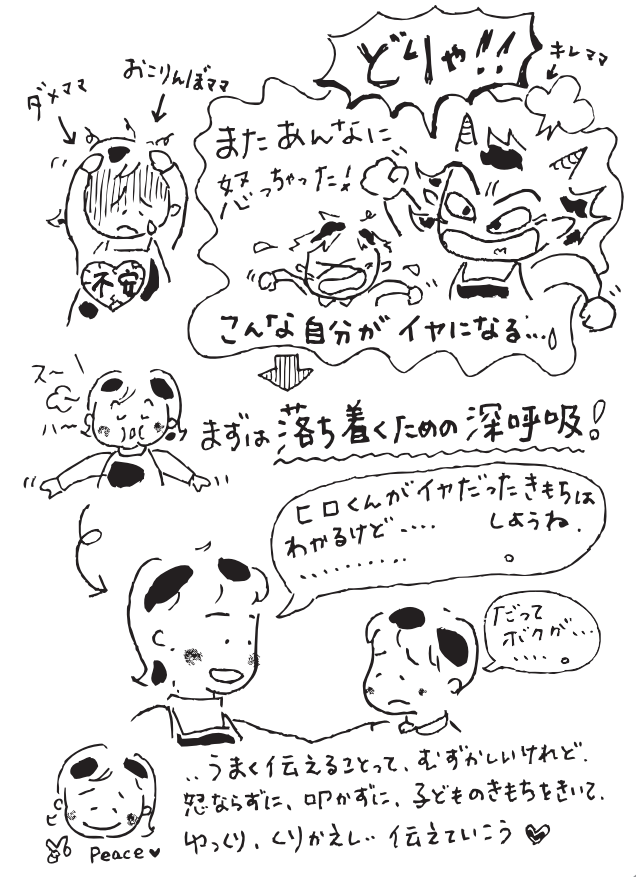 どりゃ!!
キレママ
おこりんぼママ
ダメママ
またあんなに
怒っちゃった!
不安
こんな自分がイヤになる…
スー
ハー
まずは落ち着くための深呼吸!
ヒロくんがイヤだったきもちは
わかるけど‥‥ しようね.
‥‥‥‥‥。
だって
ボクが…
‥‥。
‥うまく伝えることって、むずかしいけれど.
怒ならずに、叩かずに、子どものきもちをきいて.
ゆっくり、くりかえし‥伝えていこう♥
Peace♥